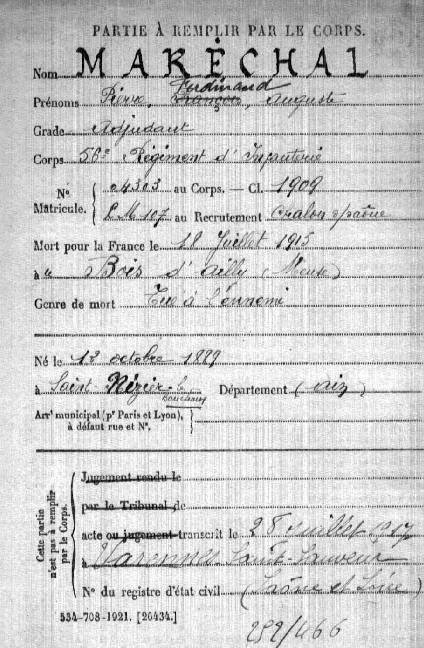 PARTIE À REMPLIR PAR LE CORPS.
Nom MARÉCHAL
Ferdinand
Prénoms Pierre, François, Auguste
Grade Adjudant
Corps 56e Régiment d'Infanterie
N° Matricule. { 04303 au Corps. — Cl. 1909
L M 107 au Recrutement Chalon s/Saône
Mort pour la France le 18 Juillet 1915
à Bois d'Ailly (Meuse)
Genre de mort Tué à l'ennemi
Né le 12 octobre 1889
à Saint Nizier-le Département (Ain)
Bouchoux
Arrt municipal (pr Paris et Lyon),
à défaut rue et N°.
Cette partie n'est pas à remplir par le Corps.
Jugement rendu le
par le Tribunal de
acte ou jugement transcrit le 28 Juillet 1917
à Varennes Saint Sauveur
N° du registre d'état civil (Saône et Loire)
534-708-1921. [26434.]
292/466